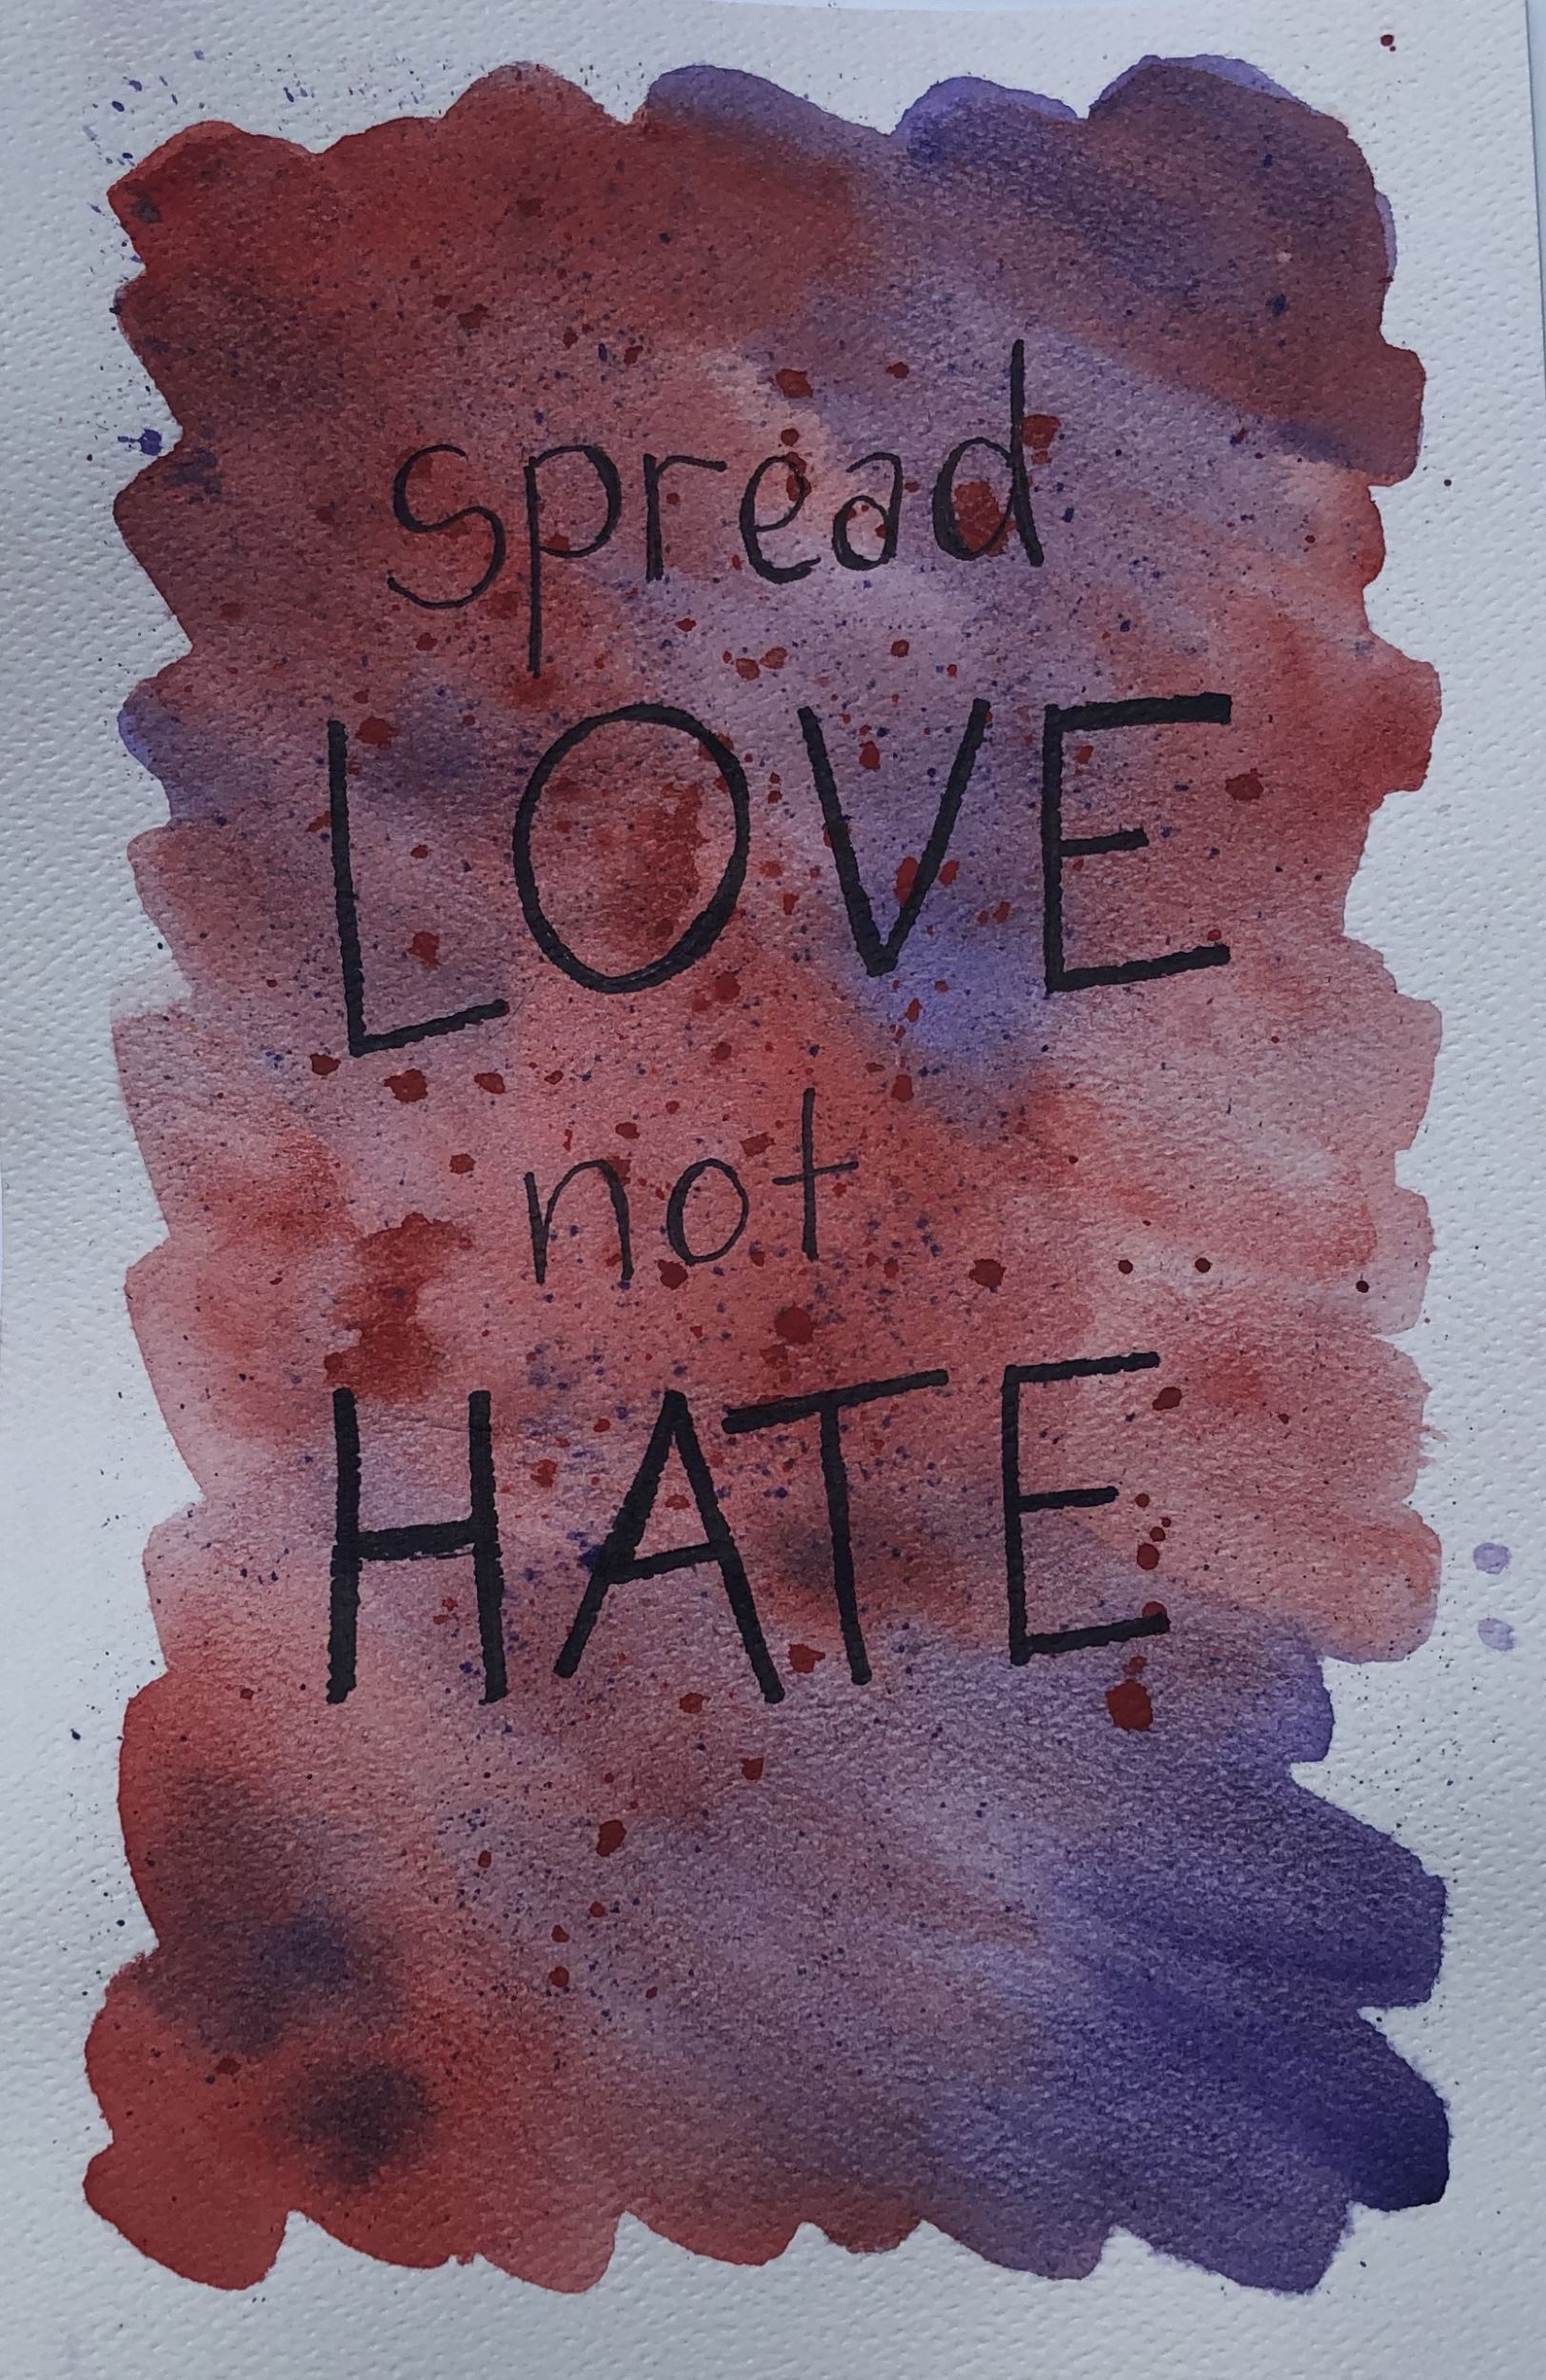 spread
LOVE
not
HATE